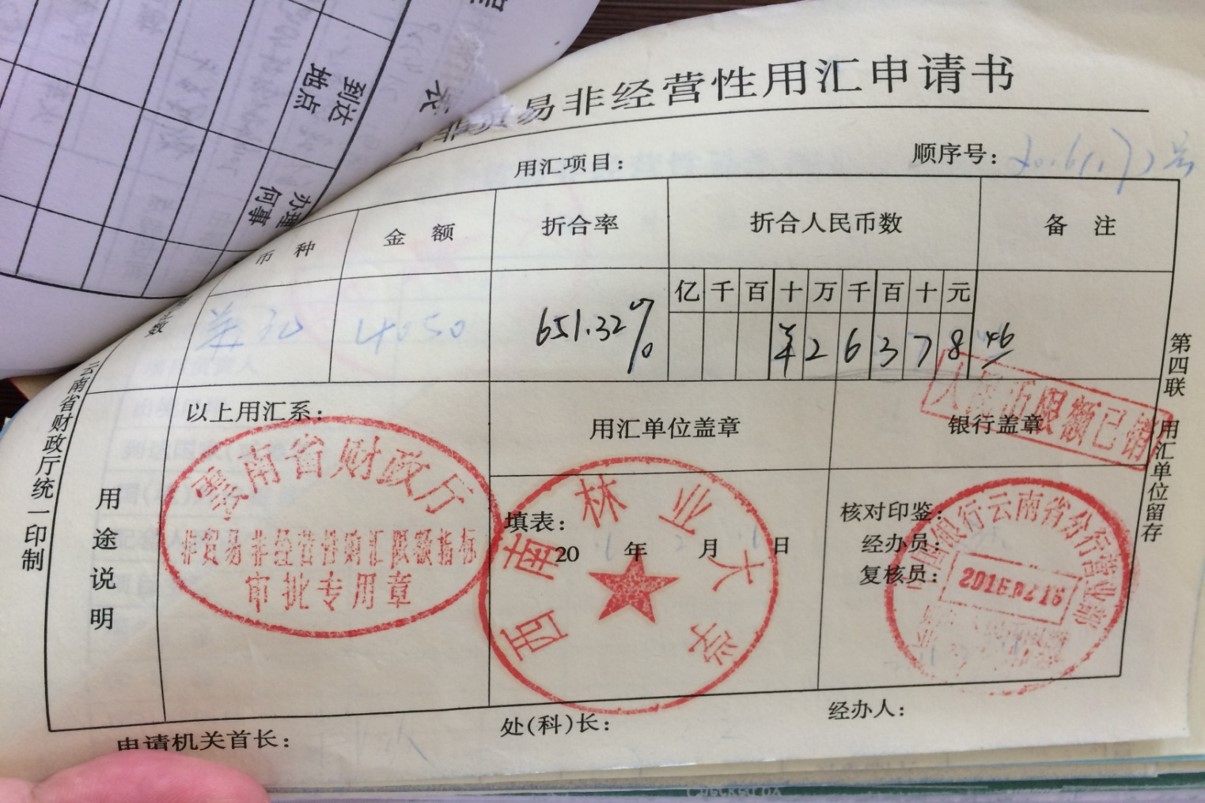 到达
地点
办理
何事
易非经营性用汇申请书
用汇项目:
顺序号:
币种 金额 折合率 折合人民币数 备注
亿 千 百 十 万 千 百 十 元
美元 4050 651.32% 羊 2 6 3 7 8 46
以上用汇系: 用汇单位盖章 银行盖章
人民币限额已销
用途说明
雲南省财政厅
非贸易非经营性购汇限额指标
审批专用章
填表:
20 年 月 日
西南林业大学
核对印鉴:
经办员:
复核员:
银行云南省分行营业部
2016.02.16
申请机关首长: 处(科)长: 经办人:
云南省财政厅统一印制
第四联
用汇单位留存